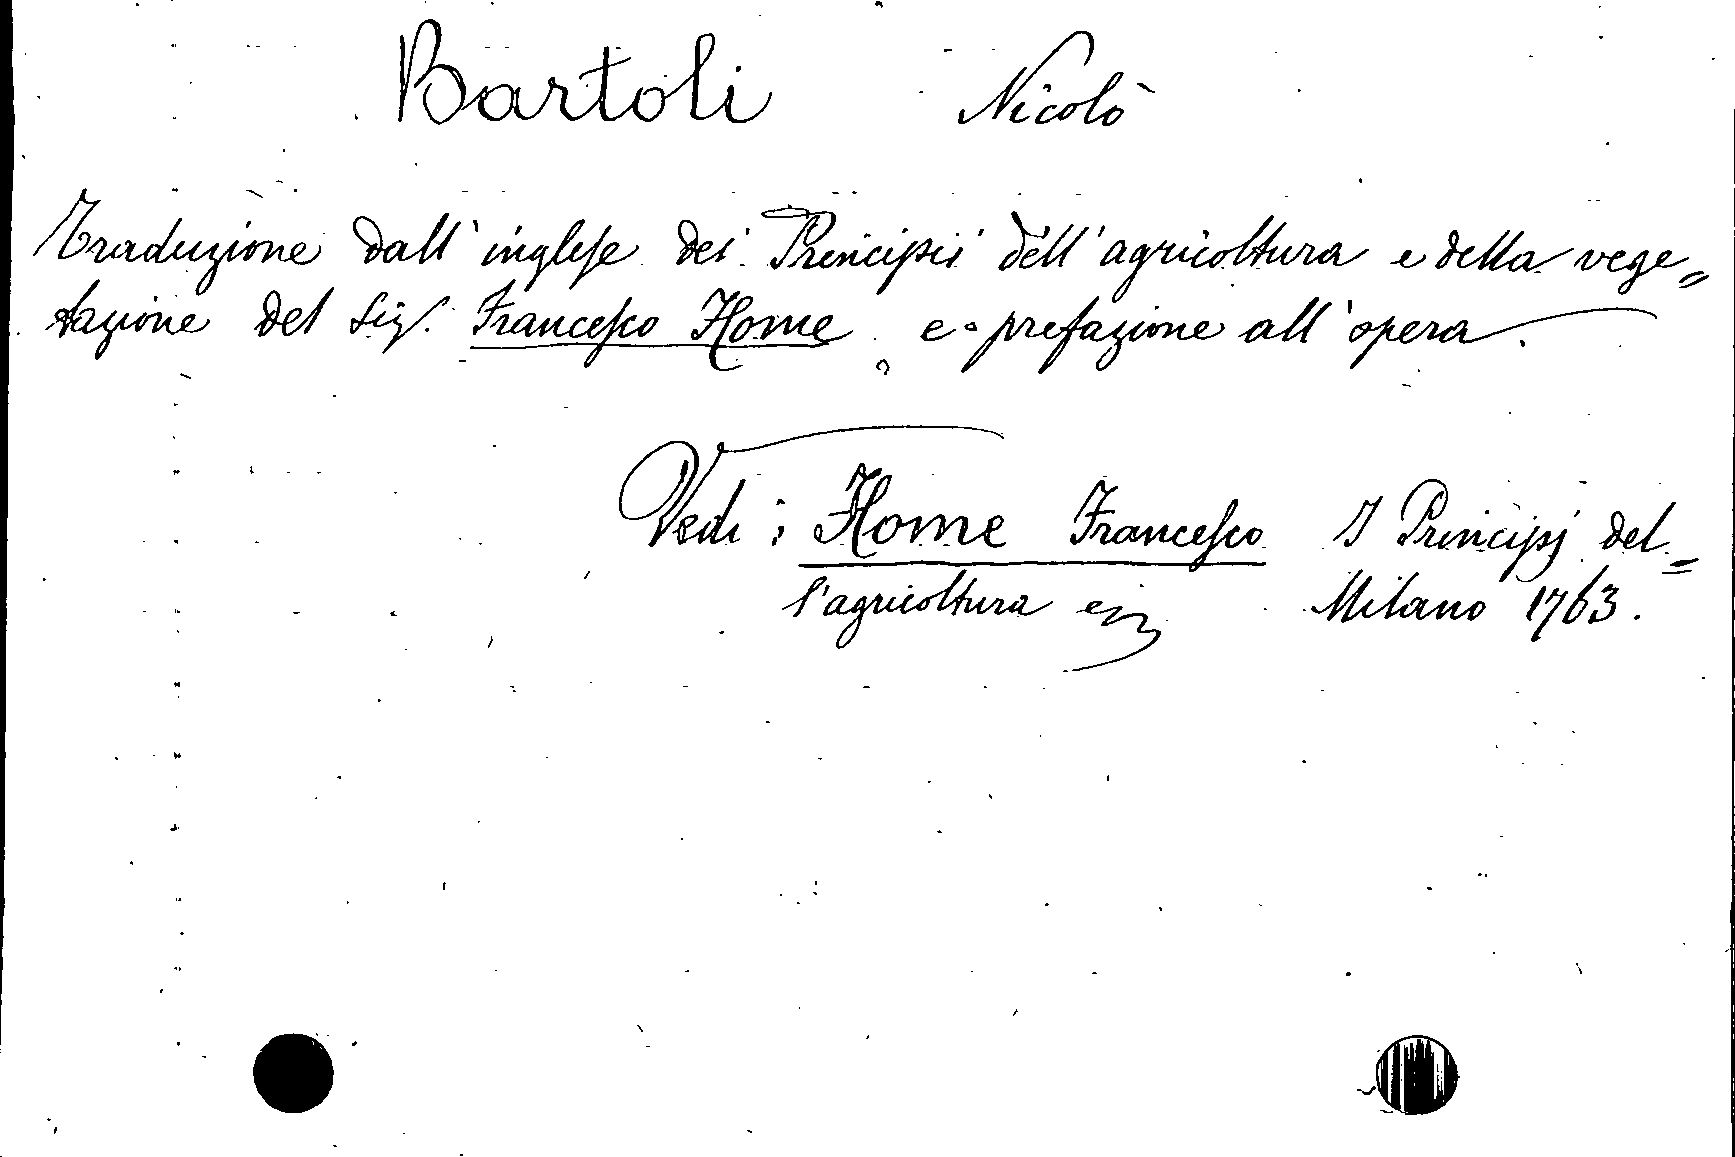 Bartoli Nicolò
Traduzione dall'inglese dei Principii dell'agricoltura e della vege=
tazione del Sig. Francesco Home e prefazione all'opera.
Vedi: Home Francesco I Principj del=
l'agricoltura e Milano 1763.